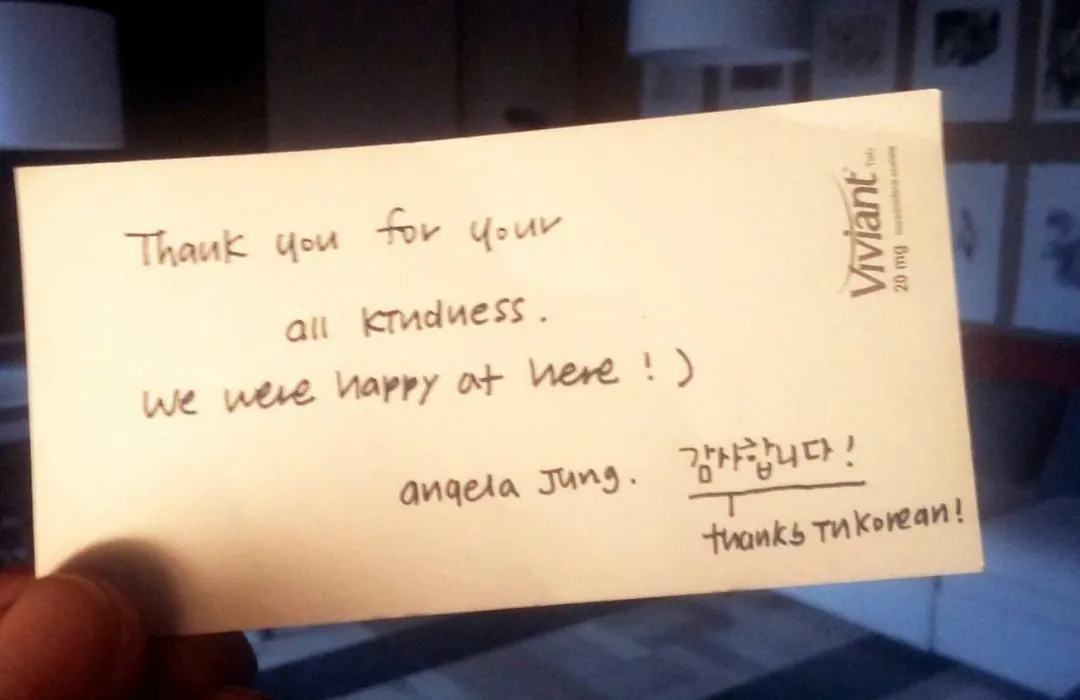 Thank you for your
all kindness.
We were happy at here ! )
angela Jung. 감사합니다!
thanks in korean!
Viviant Tab.
20 mg